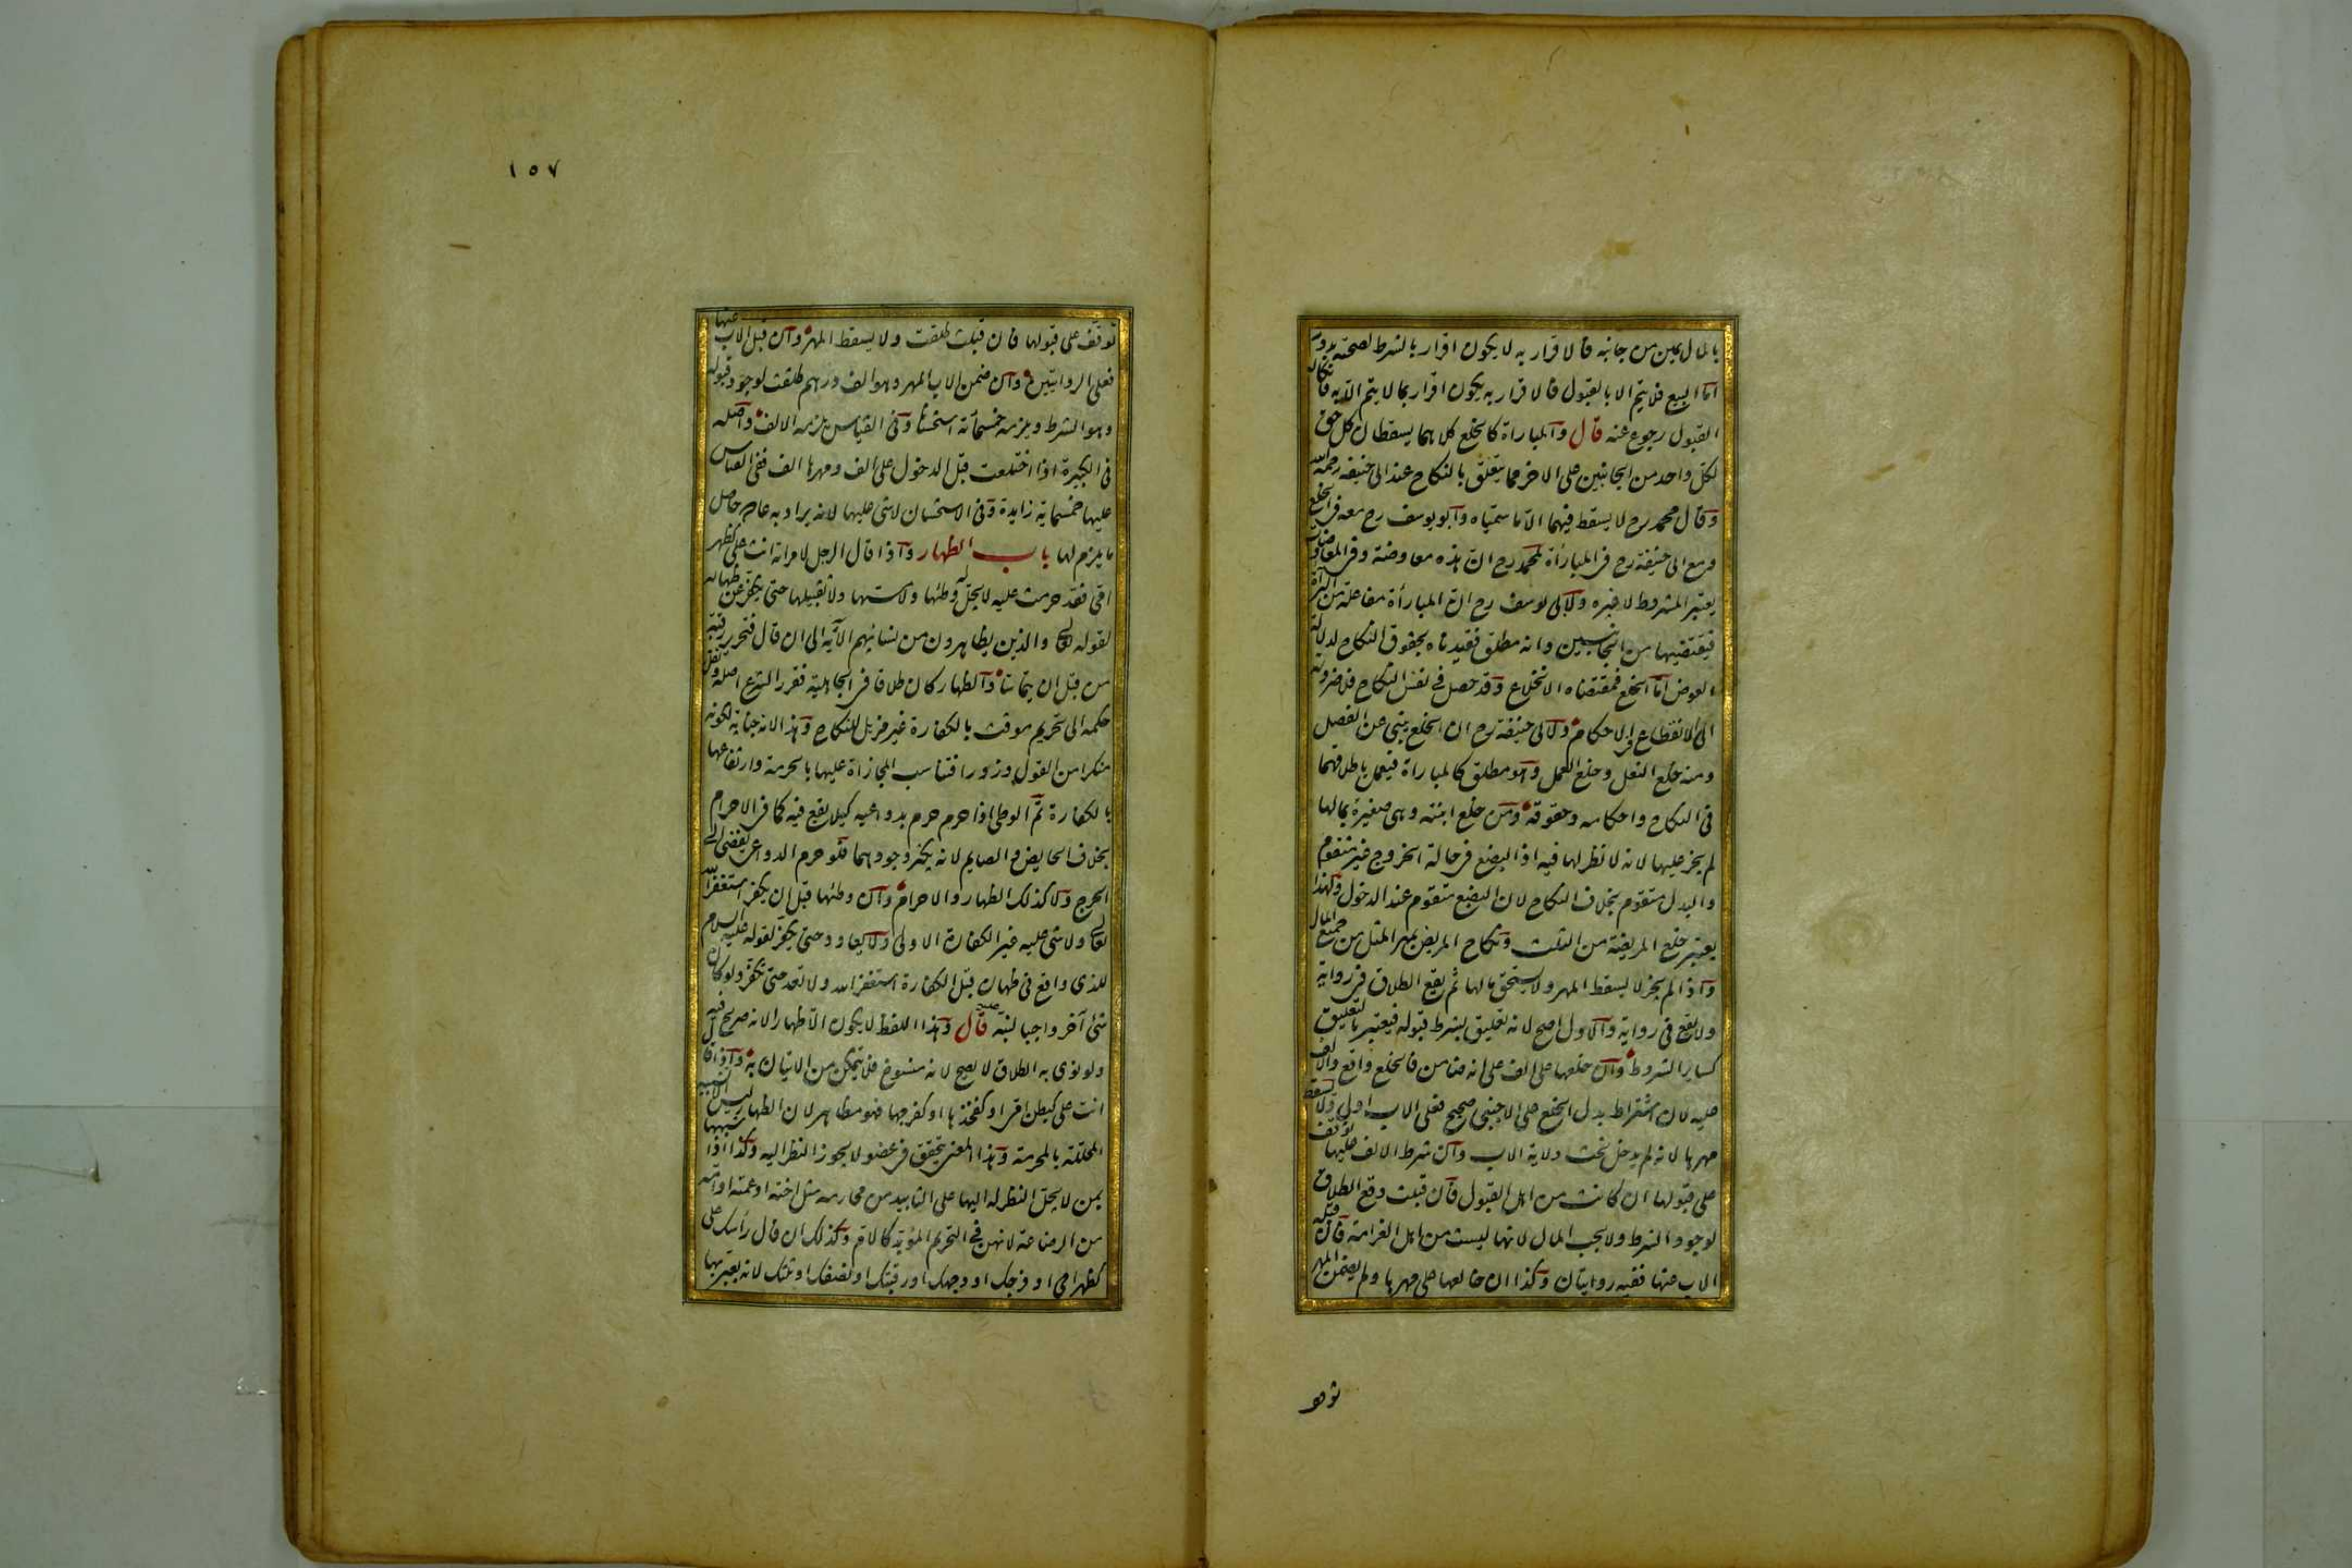 بالمال يمين من جانبه فالاقرار به لا يكون اقرار بالشرط لصحته بدونه
اما البيع فلا يتم الا بالقبول فالاقرار به يكون اقرار بما لا يتم الا به فانكار
القبول رجوع عنه قال والمباراة كالخلع كلاهما يسقطان كل حق
لكل واحد من الجانبين على الاخر مما يتعلق بالنكاح عند ابى حنيفه رحمه الله
وقال محمد رح لا يسقط فيهما الا ما سمياه وابو يوسف رح معه فى الخلع
ومع ابى حنيفة رح فى المبارأة لمحمد رح ان هذه معاوضة وفى المعاوضات
يعتبر المشروط لا غيره ولابى يوسف رح ان المبارأة مفاعلة من البرأة
فيقتضيها من الجانبين وانه مطلق فقيدناه بحقوق النكاح لدلالة
الغرض اما الخلع فمقتضاه الانخلاع وقد حصل فى نقض النكاح فلا ضرورة
الى الانقطاع فى الاحكام ولابى حنيفة رح ان الخلع ينبى عن الفصل
ومنه خلع النعل وخلع العمل وهو مطلق كالمباراة فيعمل باطلاقهما
فى النكاح واحكامه وحقوقه ومن خلع ابنته وهى صغيرة بمالها
لم يجز عليها لانه لا نظر لها فيه اذ البضع فى حالة الخروج غير متقوم
والبدل متقوم بخلاف النكاح لان البضع متقوم عند الدخول ولهذا
يعتبر خلع المريضة من الثلث ونكاح المريض بمهر المثل من جميع المال
واذا لم يجز لا يسقط المهر ولا يستحق مالها ثم يقع الطلاق فى رواية
ولا يقع فى رواية والاول اصح لانه تعليق بشرط قبوله فيعتبر بالتعليق
كساير الشروط وان خلعها على الف على انه ضامن فالخلع واقع والالف
عليه لان اشتراط بدل الخلع على الاجنبى صحيح فعلى الاب اولى ولا يسقط
مهرها لانه لم يدخل تحت ولاية الاب وان شرط الالف عليها توقف
على قبولها ان كانت من اهل القبول فان قبلت وقع الطلاق
لوجود الشرط ولا يجب المال لانها ليست من اهل الغرامة فان قبله
الاب عنها ففيه روايتان وكذا ان خالعها على مهرها ولم يضمن المهر
توقف
١٥٧
توقف على قبولها فان قبلت طلقت ولا يسقط المهر وان قبل الاب عنها
فعلى الروايتين وان ضمن الاب المهر وهو الف درهم طلقت لوجود قبوله
وهو الشرط ويلزمه خمسمائة استحسانا وفى القياس يلزمه الالف واصله
فى الكبيرة اذا اختلعت قبل الدخول على الف ومهرها الف ففى القياس
عليها خمسماية زايدة وفى الاستحسان لا شى عليها لانه يراد به عادة حاصل
ما يلزم لها باب الظهار واذا قال الرجل لامراته انت على كظهر
امى فقد حرمت عليه لا يحل له وطئها ولا مسها ولا تقبيلها حتى يكفر عن ظهاره
لقوله تعالى والذين يظاهرون من نسائهم الآية الى ان قال فتحرير رقبة
من قبل ان يتماسا والظهار كان طلاقا فى الجاهلية فقرر الشرع اصله ونقل
حكمه الى تحريم موقت بالكفارة غير مزيل للنكاح وهذا لانه جناية لكونه
منكرا من القول وزورا فتناسب المجازاة عليها بالحرمة وارتفاعها
بالكفارة ثم الوطى اذا حرم حرم بدواعيه كيلا يقع فيه كما فى الاحرام
بخلاف الحايض والصايم لانه يكثر وجودهما فلو حرم الدواعى يفضى الى
الحرج ولا كذلك الظهار والاحرام وان وطئها قبل ان يكفر استغفر الله
تعالى ولا شى عليه غير الكفارة الاولى ولا يعاود حتى يكفر لقوله عليه السلام
للذى واقع فى ظهاره قبل الكفارة استغفر الله ولا تعد حتى تكفر ولو كان
شئ آخر واجبا لنبه عليه قال وهذا اللفظ لا يكون الا ظهارا لانه صريح فيه
ولو نوى به الطلاق لا يصح لانه منسوخ فلا يتمكن من الاتيان به واذا قال
انت على كبطن امى او كفخذها او كفرجها فهو مظاهر لان الظهار ليس الا تشبيه
المحللة بالمحرمة وهذا المعنى يتحقق فى عضو لا يجوز النظر اليه وكذا اذا شبهها
بمن لا يحل النظر له اليها على التابيد من محارمه مثل اخته او عمته او امه
من الرضاعة لانهن فى التحريم المؤبد كالام وكذلك ان قال رأسك على
كظهر امى او فرجك او وجهك او رقبتك او نصفك او ثلثك لانه يعبر بها